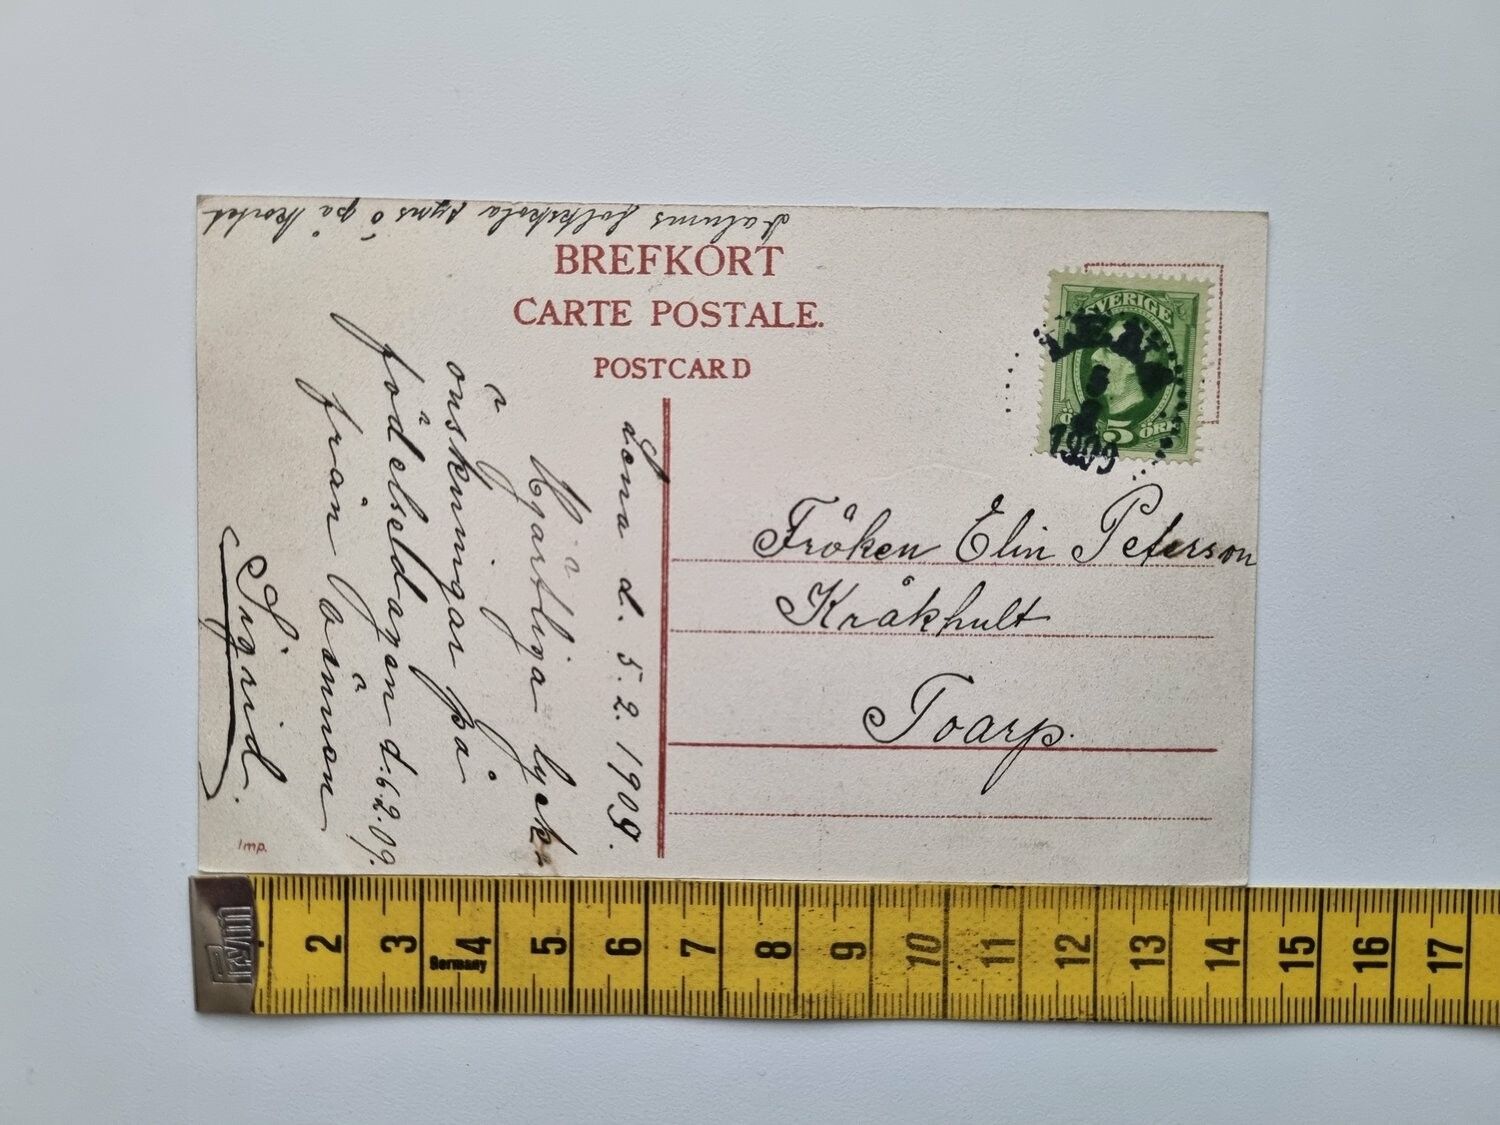 Dalums folkskola syns ö på kortet
BREFKORT
CARTE POSTALE.
POSTCARD
SVERIGE
5
ÖRE
1909
Fröken Elin Peterson
Kråkhult
Toarp.
Lena d. 5.2.1909.
Hjärtliga lycko
önskningar på
födelsedagen d. 6.2.09.
från vännen
Sigrid.
Imp.
Prym
Germany
2 3 4 5 6 7 8 9 10 11 12 13 14 15 16 17